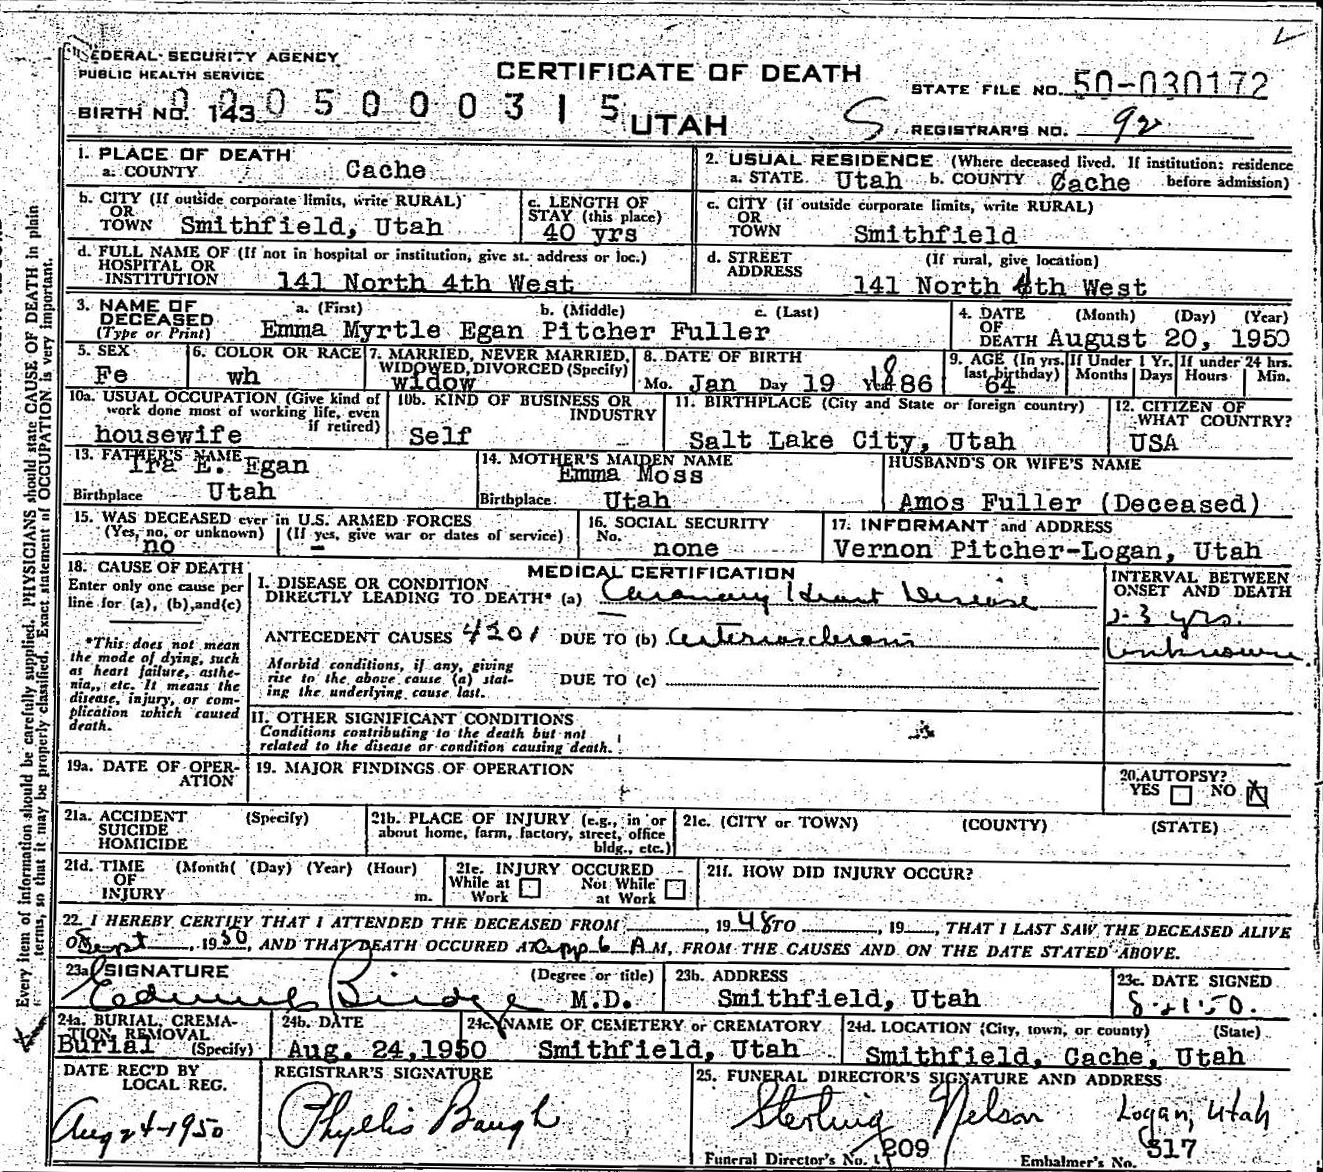 FEDERAL SECURITY AGENCY
PUBLIC HEALTH SERVICE
CERTIFICATE OF DEATH
STATE FILE NO. 50-030172
BIRTH NO. 143 0205000315
UTAH
S
REGISTRAR'S NO. 92
1. PLACE OF DEATH
a. COUNTY Cache
2. USUAL RESIDENCE (Where deceased lived. If institution: residence
a. STATE Utah b. COUNTY Cache before admission)
b. CITY (If outside corporate limits, write RURAL)
OR
TOWN Smithfield, Utah
c. LENGTH OF
STAY (this place)
40 yrs
c. CITY (if outside corporate limits, write RURAL)
OR
TOWN Smithfield
d. FULL NAME OF (If not in hospital or institution, give st. address or loc.)
HOSPITAL OR
INSTITUTION 141 North 4th West
d. STREET (If rural, give location)
ADDRESS 141 North 4th West
3. NAME OF a. (First) b. (Middle) c. (Last)
DECEASED
(Type or Print) Emma Myrtle Egan Pitcher Fuller
4. DATE (Month) (Day) (Year)
OF
DEATH August 20, 1950
5. SEX
Fe
6. COLOR OR RACE
wh
7. MARRIED, NEVER MARRIED,
WIDOWED, DIVORCED (Specify)
widow
8. DATE OF BIRTH
Mo. Jan Day 19 Yr. 1886
9. AGE (In yrs. last birthday)
64
If Under 1 Yr.
Months Days
If under 24 hrs.
Hours Min.
10a. USUAL OCCUPATION (Give kind of
work done most of working life, even
if retired)
housewife
10b. KIND OF BUSINESS OR
INDUSTRY
Self
11. BIRTHPLACE (City and State or foreign country)
Salt Lake City, Utah
12. CITIZEN OF
WHAT COUNTRY?
USA
13. FATHER'S NAME
Ira E. Egan
Birthplace Utah
14. MOTHER'S MAIDEN NAME
Emma Moss
Birthplace Utah
HUSBAND'S OR WIFE'S NAME
Amos Fuller (Deceased)
15. WAS DECEASED ever in U.S. ARMED FORCES
(Yes, no, or unknown) (If yes, give war or dates of service)
no -
16. SOCIAL SECURITY
No. none
17. INFORMANT and ADDRESS
Vernon Pitcher-Logan, Utah
18. CAUSE OF DEATH
Enter only one cause per
line for (a), (b), and (c)
*This does not mean
the mode of dying, such
as heart failure, asthe-
nia, etc. It means the
disease, injury, or com-
plication which caused
death.
MEDICAL CERTIFICATION
I. DISEASE OR CONDITION
DIRECTLY LEADING TO DEATH* (a) Coronary Heart Disease
ANTECEDENT CAUSES 4201 DUE TO (b) arteriosclerosis
Morbid conditions, if any, giving
rise to the above cause (a) stat-
ing the underlying cause last.
DUE TO (c)
INTERVAL BETWEEN
ONSET AND DEATH
2-3 yrs.
Unknown
II. OTHER SIGNIFICANT CONDITIONS
Conditions contributing to the death but not
related to the disease or condition causing death.
19a. DATE OF OPER-
ATION
19. MAJOR FINDINGS OF OPERATION
20. AUTOPSY?
YES NO X
21a. ACCIDENT (Specify)
SUICIDE
HOMICIDE
21b. PLACE OF INJURY (e.g., in or
about home, farm, factory, street, office
bldg., etc.)
21c. (CITY or TOWN) (COUNTY) (STATE)
21d. TIME (Month( (Day) (Year) (Hour)
OF
INJURY m.
21e. INJURY OCCURED
While at Work Not While at Work
21f. HOW DID INJURY OCCUR?
22. I HEREBY CERTIFY THAT I ATTENDED THE DECEASED FROM , 1948 TO , 19 , THAT I LAST SAW THE DECEASED ALIVE
ON Sept , 1950, AND THAT DEATH OCCURED AT app 6 A.M, FROM THE CAUSES AND ON THE DATE STATED ABOVE.
23a. SIGNATURE (Degree or title)
Budge M.D.
23b. ADDRESS
Smithfield, Utah
23c. DATE SIGNED
8-21-50.
24a. BURIAL, CREMA-
TION, REMOVAL
Burial (Specify)
24b. DATE
Aug. 24, 1950
24c. NAME OF CEMETERY or CREMATORY
Smithfield, Utah
24d. LOCATION (City, town, or county) (State)
Smithfield, Cache, Utah
DATE REC'D BY
LOCAL REG.
Aug 24-1950
REGISTRAR'S SIGNATURE
Phyllis Baugh
25. FUNERAL DIRECTOR'S SIGNATURE AND ADDRESS
Sterling Nelson Logan, Utah
Funeral Director's No. 209 Embalmer's No. 317
Every item of information should be carefully supplied. PHYSICIANS should state CAUSE OF DEATH in plain
terms, so that it may be properly classified. Exact statement of OCCUPATION is very important.